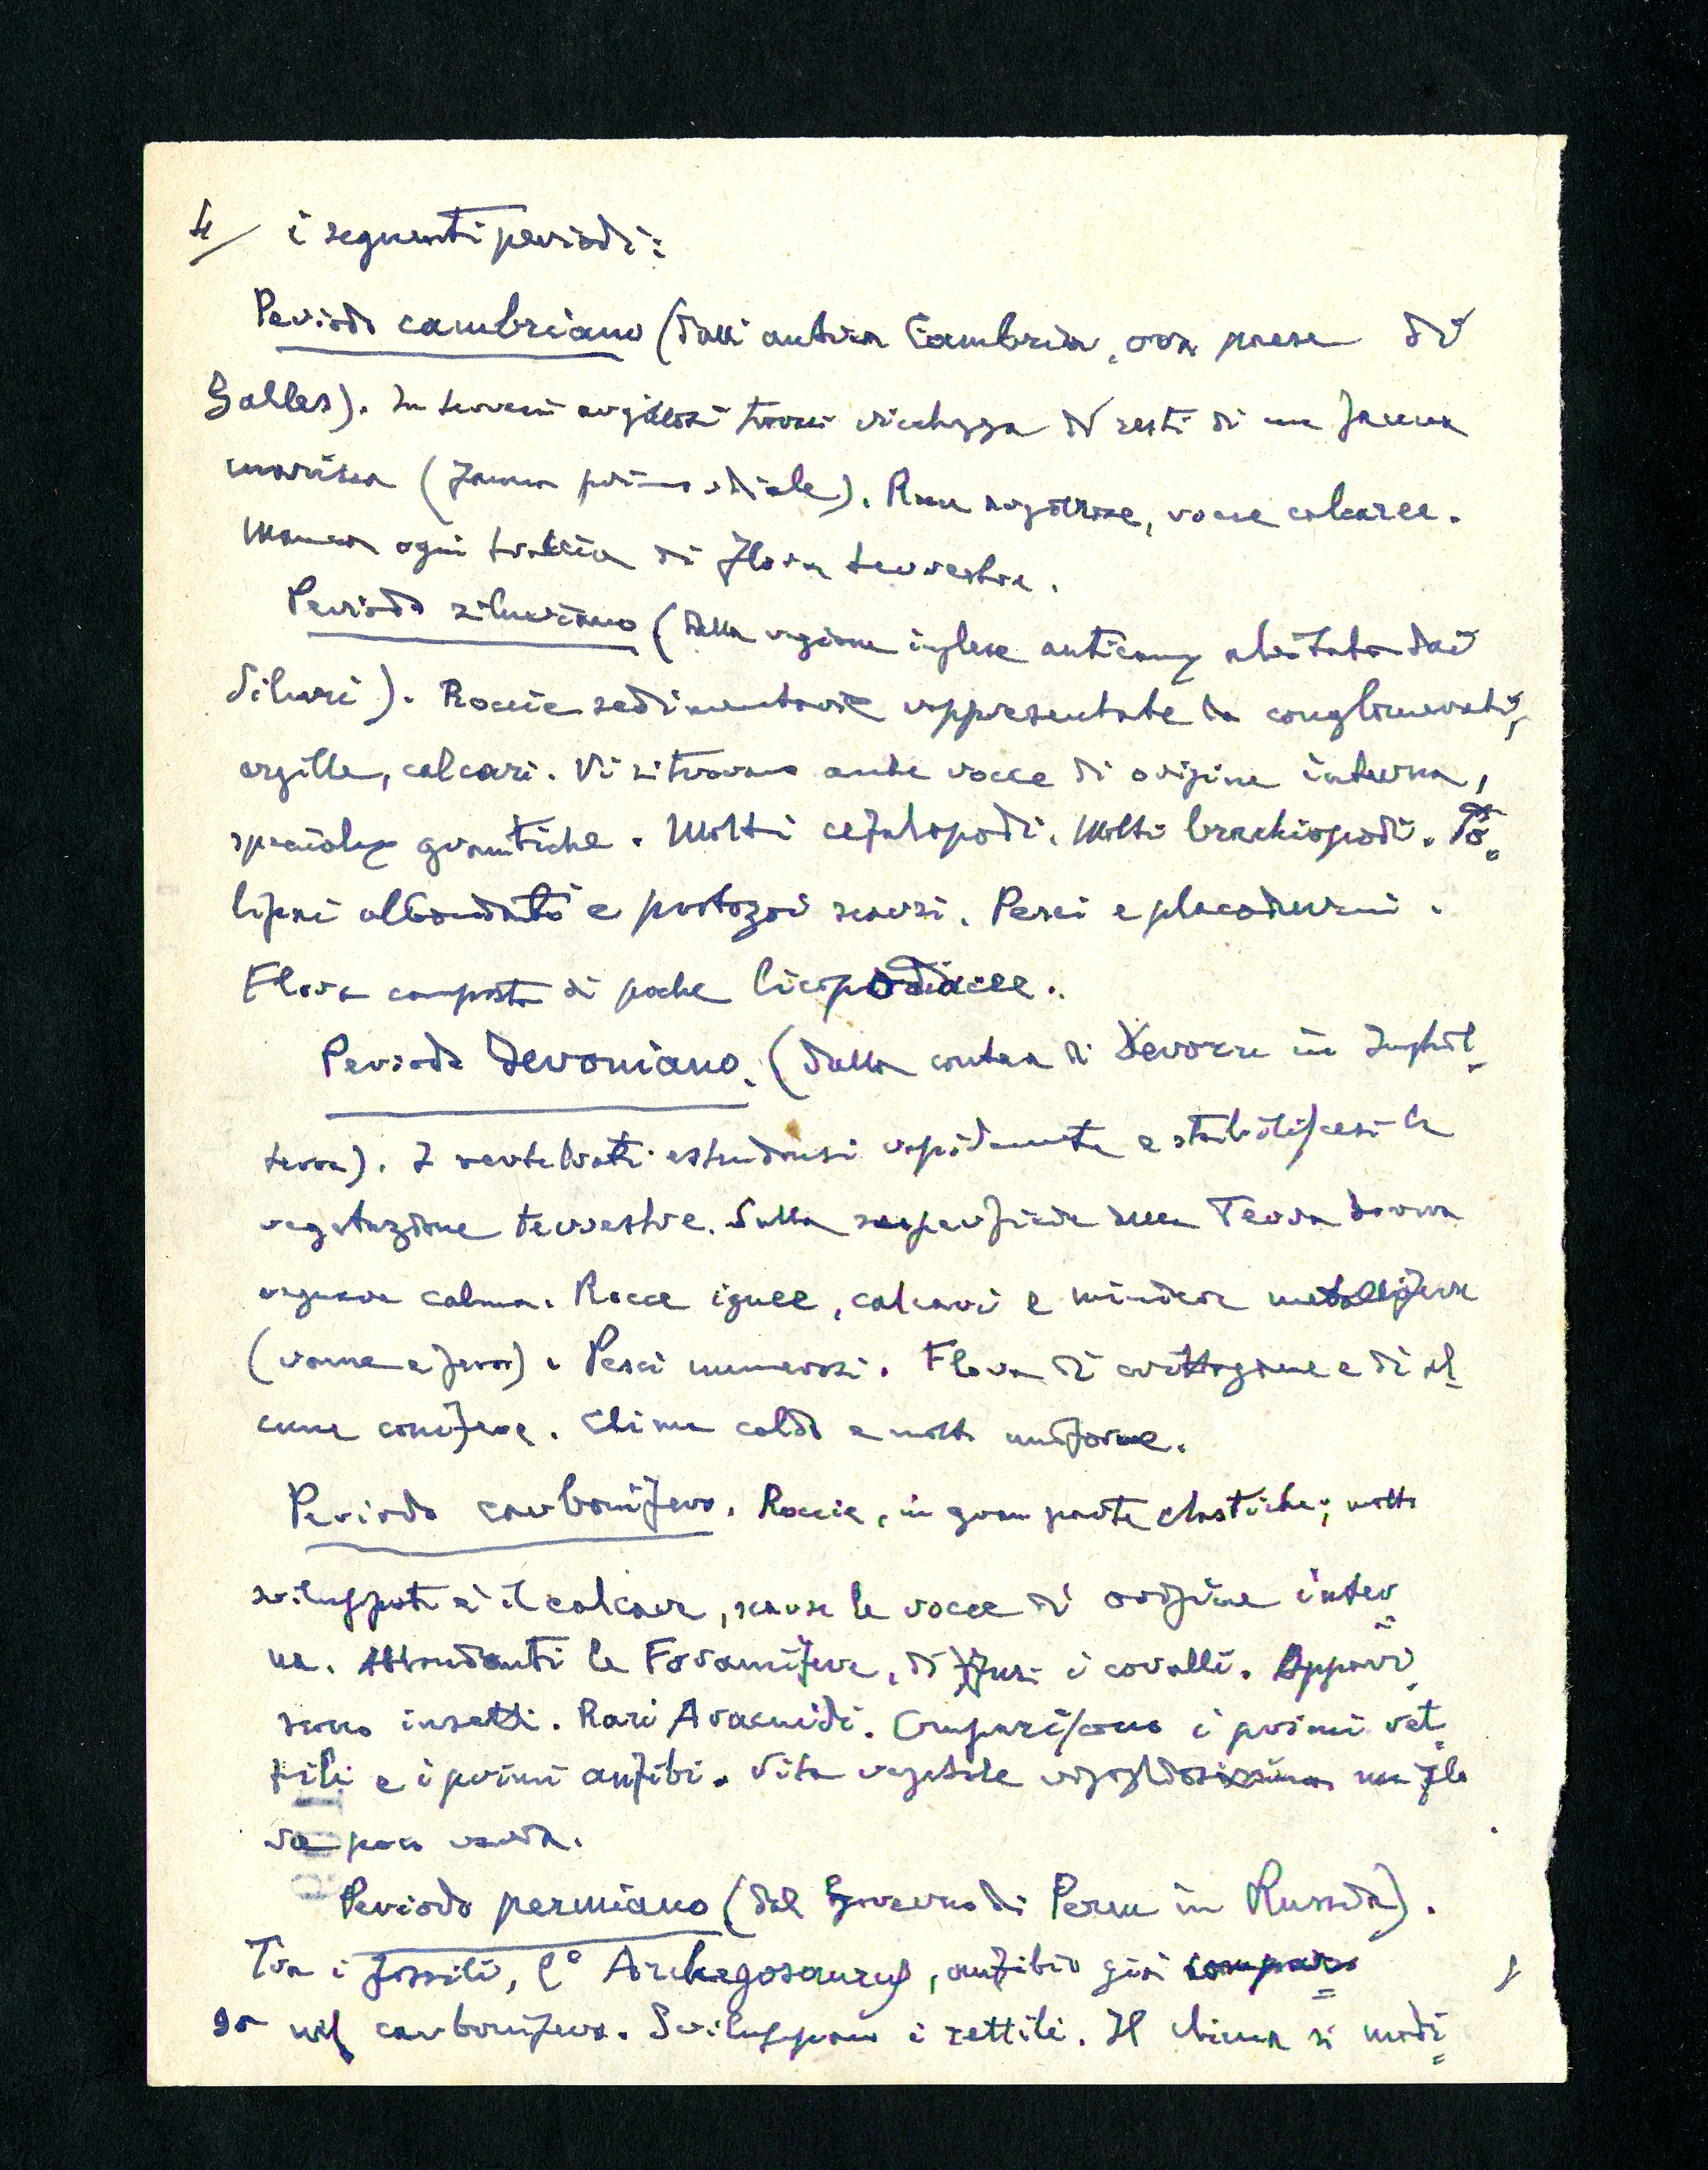 4/ i seguenti periodi:
Periodo cambriano (dall'antica Cambria, ora paese di
Galles). In terreni argillosi trovasi ricchezza di resti di una fauna
marina (fauna primordiale). Rocce argillose, rocce calcaree.
Manca ogni traccia di flora terrestre.
Periodo siluriano (dalla regione inglese anticam. abitata dai
Siluri). Roccie sedimentarie rappresentate da conglomerati,
argille, calcari. Vi si trovano anche rocce di origine interna,
specialm. granitiche. Molti cefalopodi. Molti brachiopodi. Po=
lipai abbondanti e protozoi scarsi. Pesci e placodermi.
Flora composta di poche licopodiacee.
Periodo devoniano. (Dalla contea di Devon in Inghil=
terra). I vertebrati estendonsi rapidamente e stabiliscesi la
vegetazione terrestre. Sulla superficie della Terra dovva
regnare calma. Rocce ignee, calcari e miniere metallifere
(rame e ferro). Pesci numerosi. Flora di crittogame e di al=
cune conifere. Clima caldo e molto uniforme.
Periodo carbonifero. Roccie, in gran parte clastiche; molto
sviluppato è il calcare, scarse le rocce di origine inter=
na. Abbondanti le Foraminifere, diffusi i coralli. Appari=
scono insetti. Rari Aracnidi. Compariscono i primi ret=
tili e i primi anfibi. Vita vegetale rigogliosissima ma flo
ra poco varia.
Periodo permiano (dal Governo di Perm in Russia).
Tra i fossili, l'Archegosaurus, anfibio già compar=
so nel carbonifero. Sviluppansi i rettili. Il clima si modi=